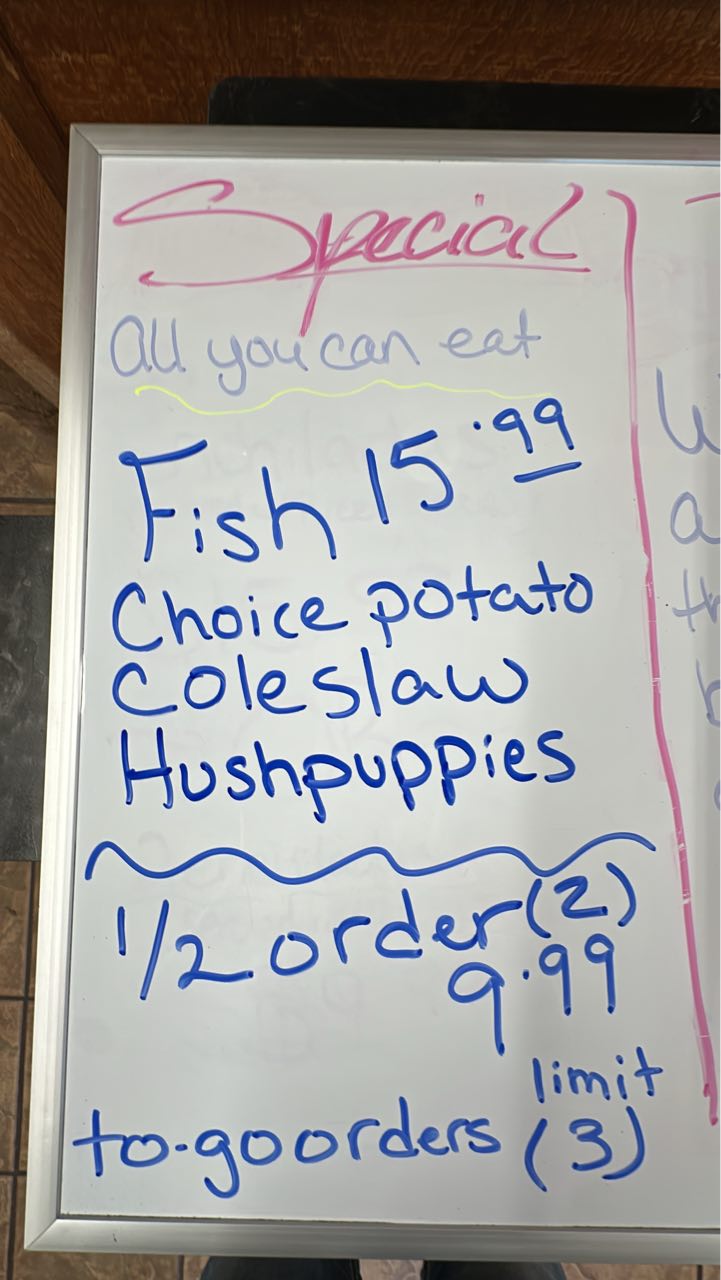 Special
All you can eat
Fish 15.99
Choice potato
Coleslaw
Hushpuppies
1/2 order (2)
9.99
limit
to-go orders (3)